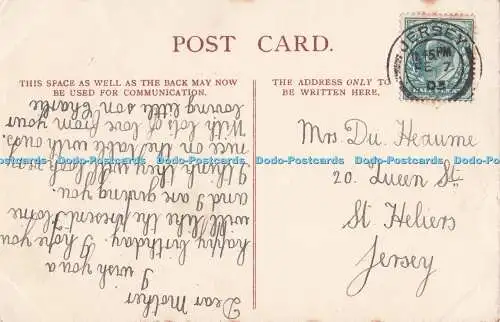 POST CARD.
THIS SPACE AS WELL AS THE BACK MAY NOW
BE USED FOR COMMUNICATION.
THE ADDRESS ONLY TO
BE WRITTEN HERE.
JERSEY
Dear Mother
I wish you a
happy birthday. I hope you
will like the present Flome
and I are giving you.
I think they will look very
nice on the table with cuds.
With lots of love from your
loving little son Charlie
Mrs Du Heaume
20. Queen St
St Heliers
Jersey
Dodo-Postcards Dodo-Postcards Dodo-Postcards Dodo-Postcards Dodo-Postcards Dodo-Postcards